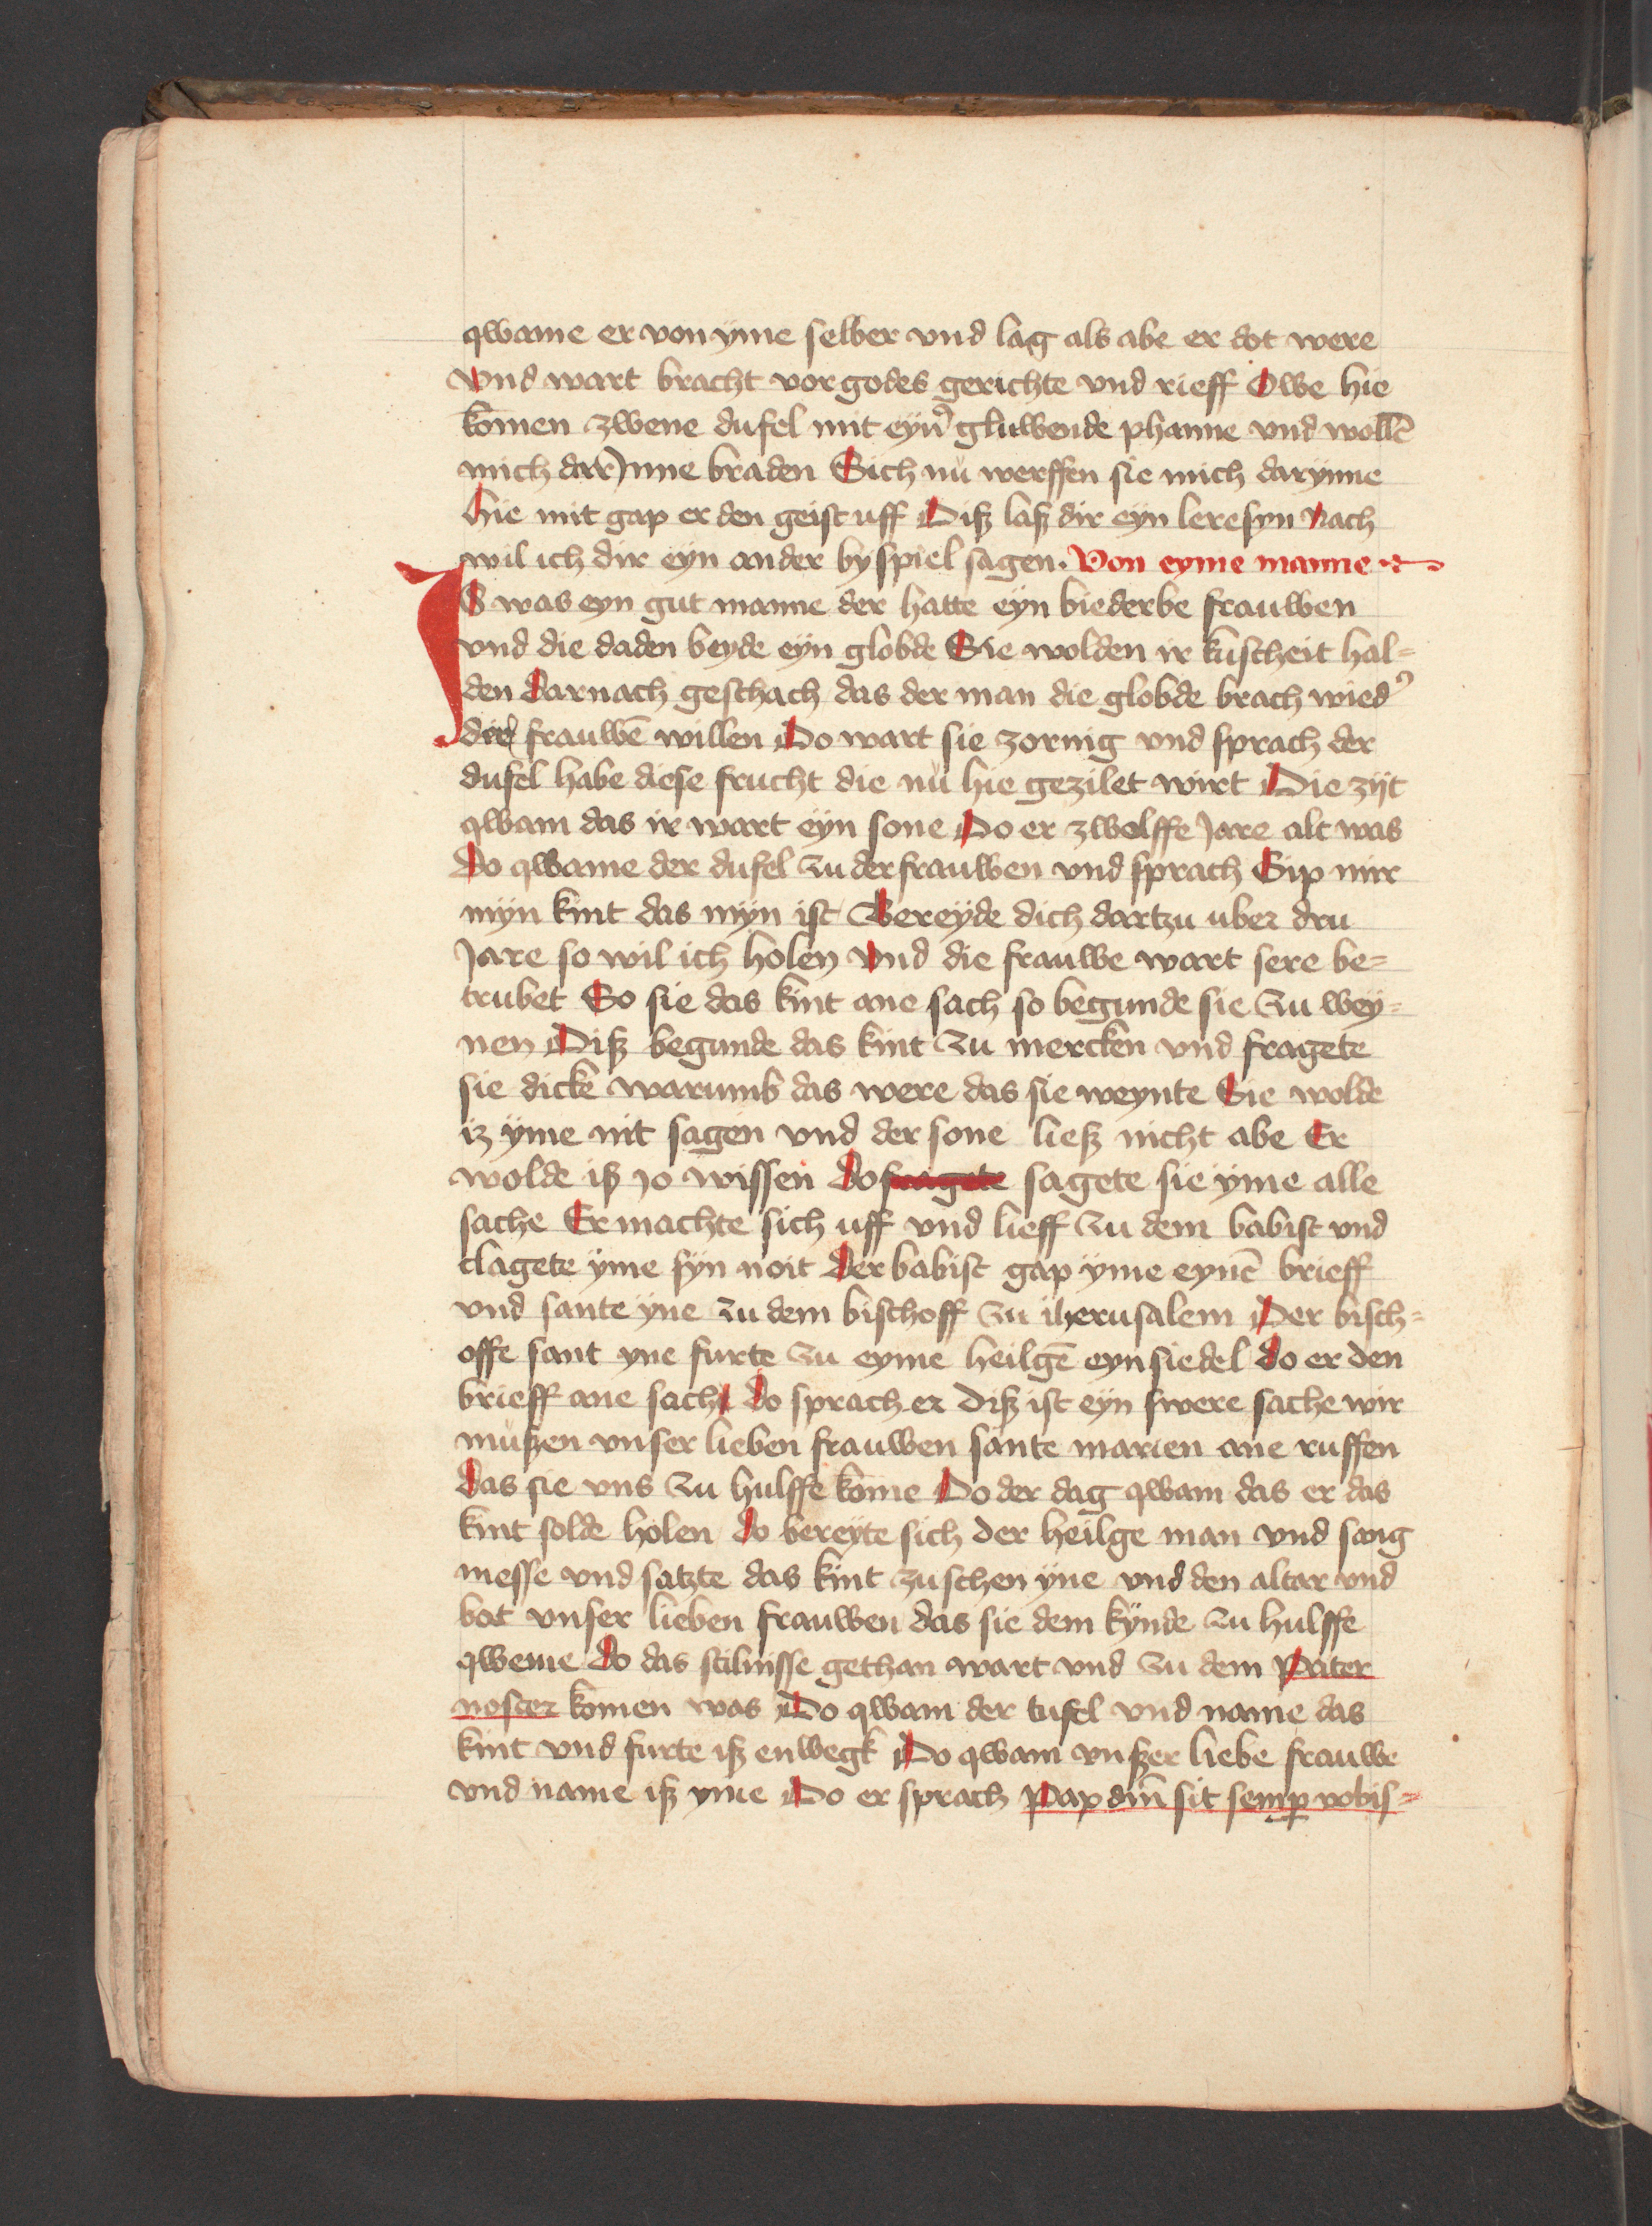 qwame er von yme selber vnd lag als abe er dot were
Vnd wart bracht vor godes gerichte vnd rieff Owe hie
komen zwene dufel mit eyn̉ gluwende phanne vnd wollē
mich darJnne braden Sich nů werffen sie mich darynne
hie mit gap er den geist uff Diß laß dir eyn lere syn Nach
wil ich dir eyn ander byspiel sagen. Von eyme manne
IS was eyn gut manne der hatte eyn biederbe frauwen
vnd die daden beyde eyn globde Sie wolden ir kuscheit hal=
den Darnach geschach das der man die globde brach wied̉
die frauwē willen Do wart sie zornig vnd sprach der
dufel habe diese frucht die nů hie gezilet wirt Die zijt
qwam das ir wart eyn sone Do er zwelffe Jare alt was
Do qwame der dufel zu der frauwen vnd sprach Gip mir
myn kint das myn ist Bereyde dich dartzu uber dru
Jare so wil ich holen Vnd die frauwe wart sere be=
trubet So sie das kint ane sach so begunde sie zu wey=
nen Diß begunde das kint zu mercken vnd fragete
sie dicke warumb das were das sie weynte Sie wolde
iz yme nit sagen vnd der sone ließ nicht abe Er
wolde iß Jo wissen do fragete sagete sie yme alle
sache Er machte sich uff vnd lieff zu dem babist vnd
clagete yme syn noit Der babist gap yme eynē brieff
vnd sante yne zu dem bischoff zu iherusalem Der bisch=
offe sant yne furte zu eyme heilgē eynsiedel Do er den
brieff ane sach Do sprach er Diß ist eyn swere sache wir
mußen vnser lieben frauwen sante marien ane ruffen
Das sie vns zu hulffe kome Do der dag qwam das er das
kint solde holen Do bereyte sich der heilge man vnd sang
messe vnd satzte das kint zuschen yne vnd den altar vnd
bat vnser lieben frauwen das sie dem kynde zu hulffe
qweme Do das stilnisse gethan wart vnd zu dem Pater
noster komen was Do qwam der tufel vnd name das
kint vnd furte iß enwegk Do qwam vnßer liebe frauwe
vnd name iß yme Do er sprach Pax dm̄ sit semꝑ vobis=